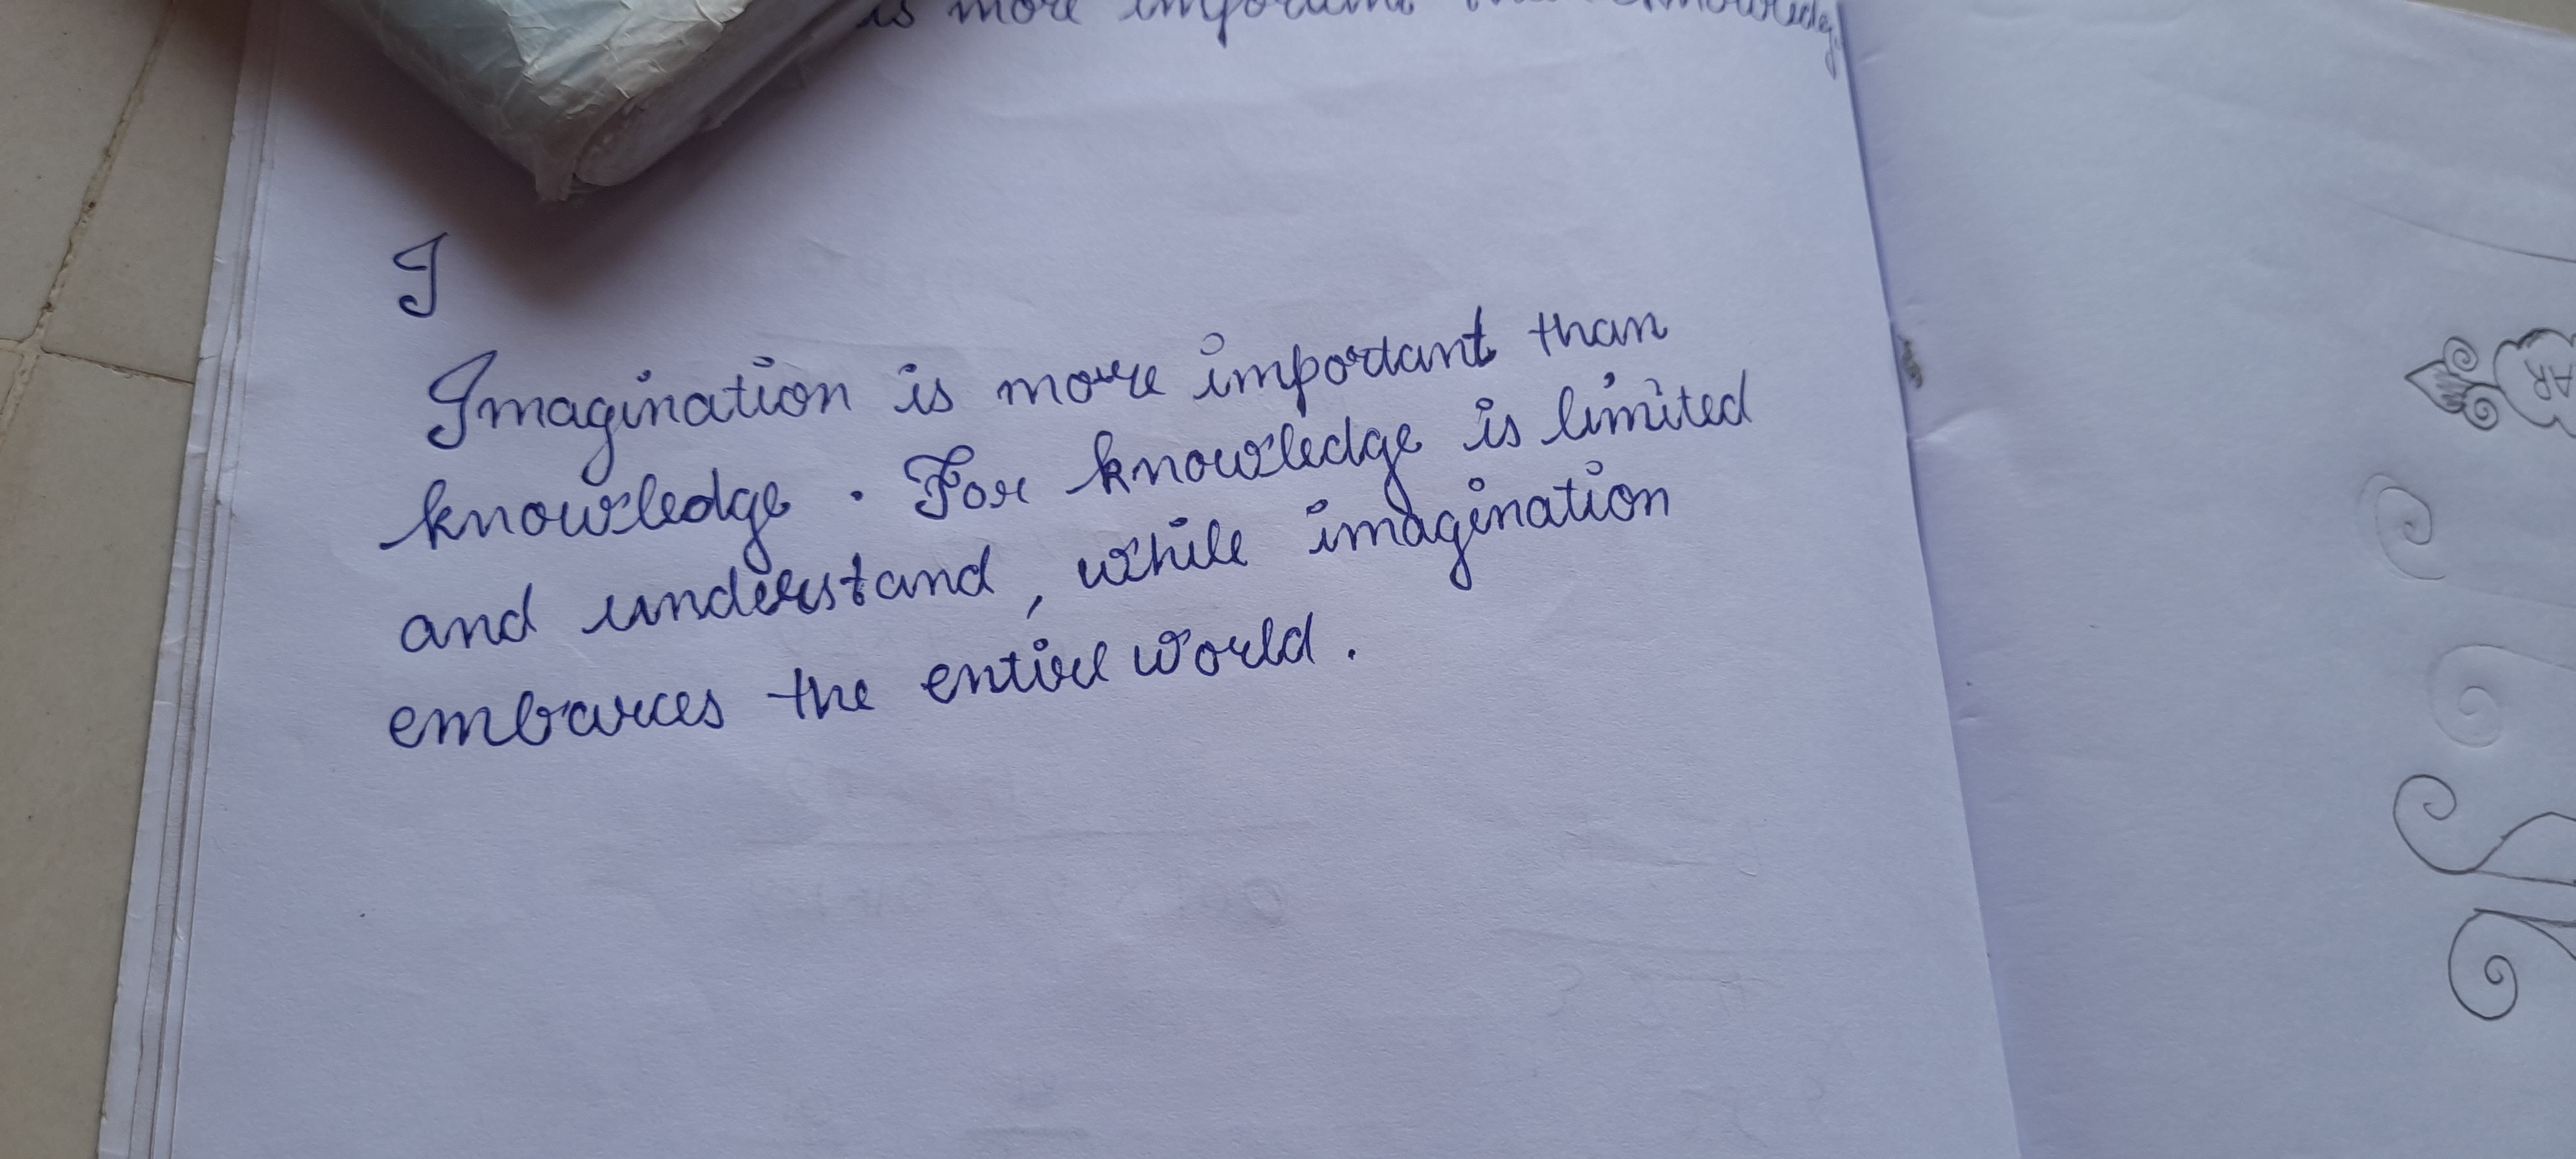 is more important than knowledge
I
Imagination is more important than
knowledge . For knowledge is limited
and understand, while imagination
embarces the entire world.
AR